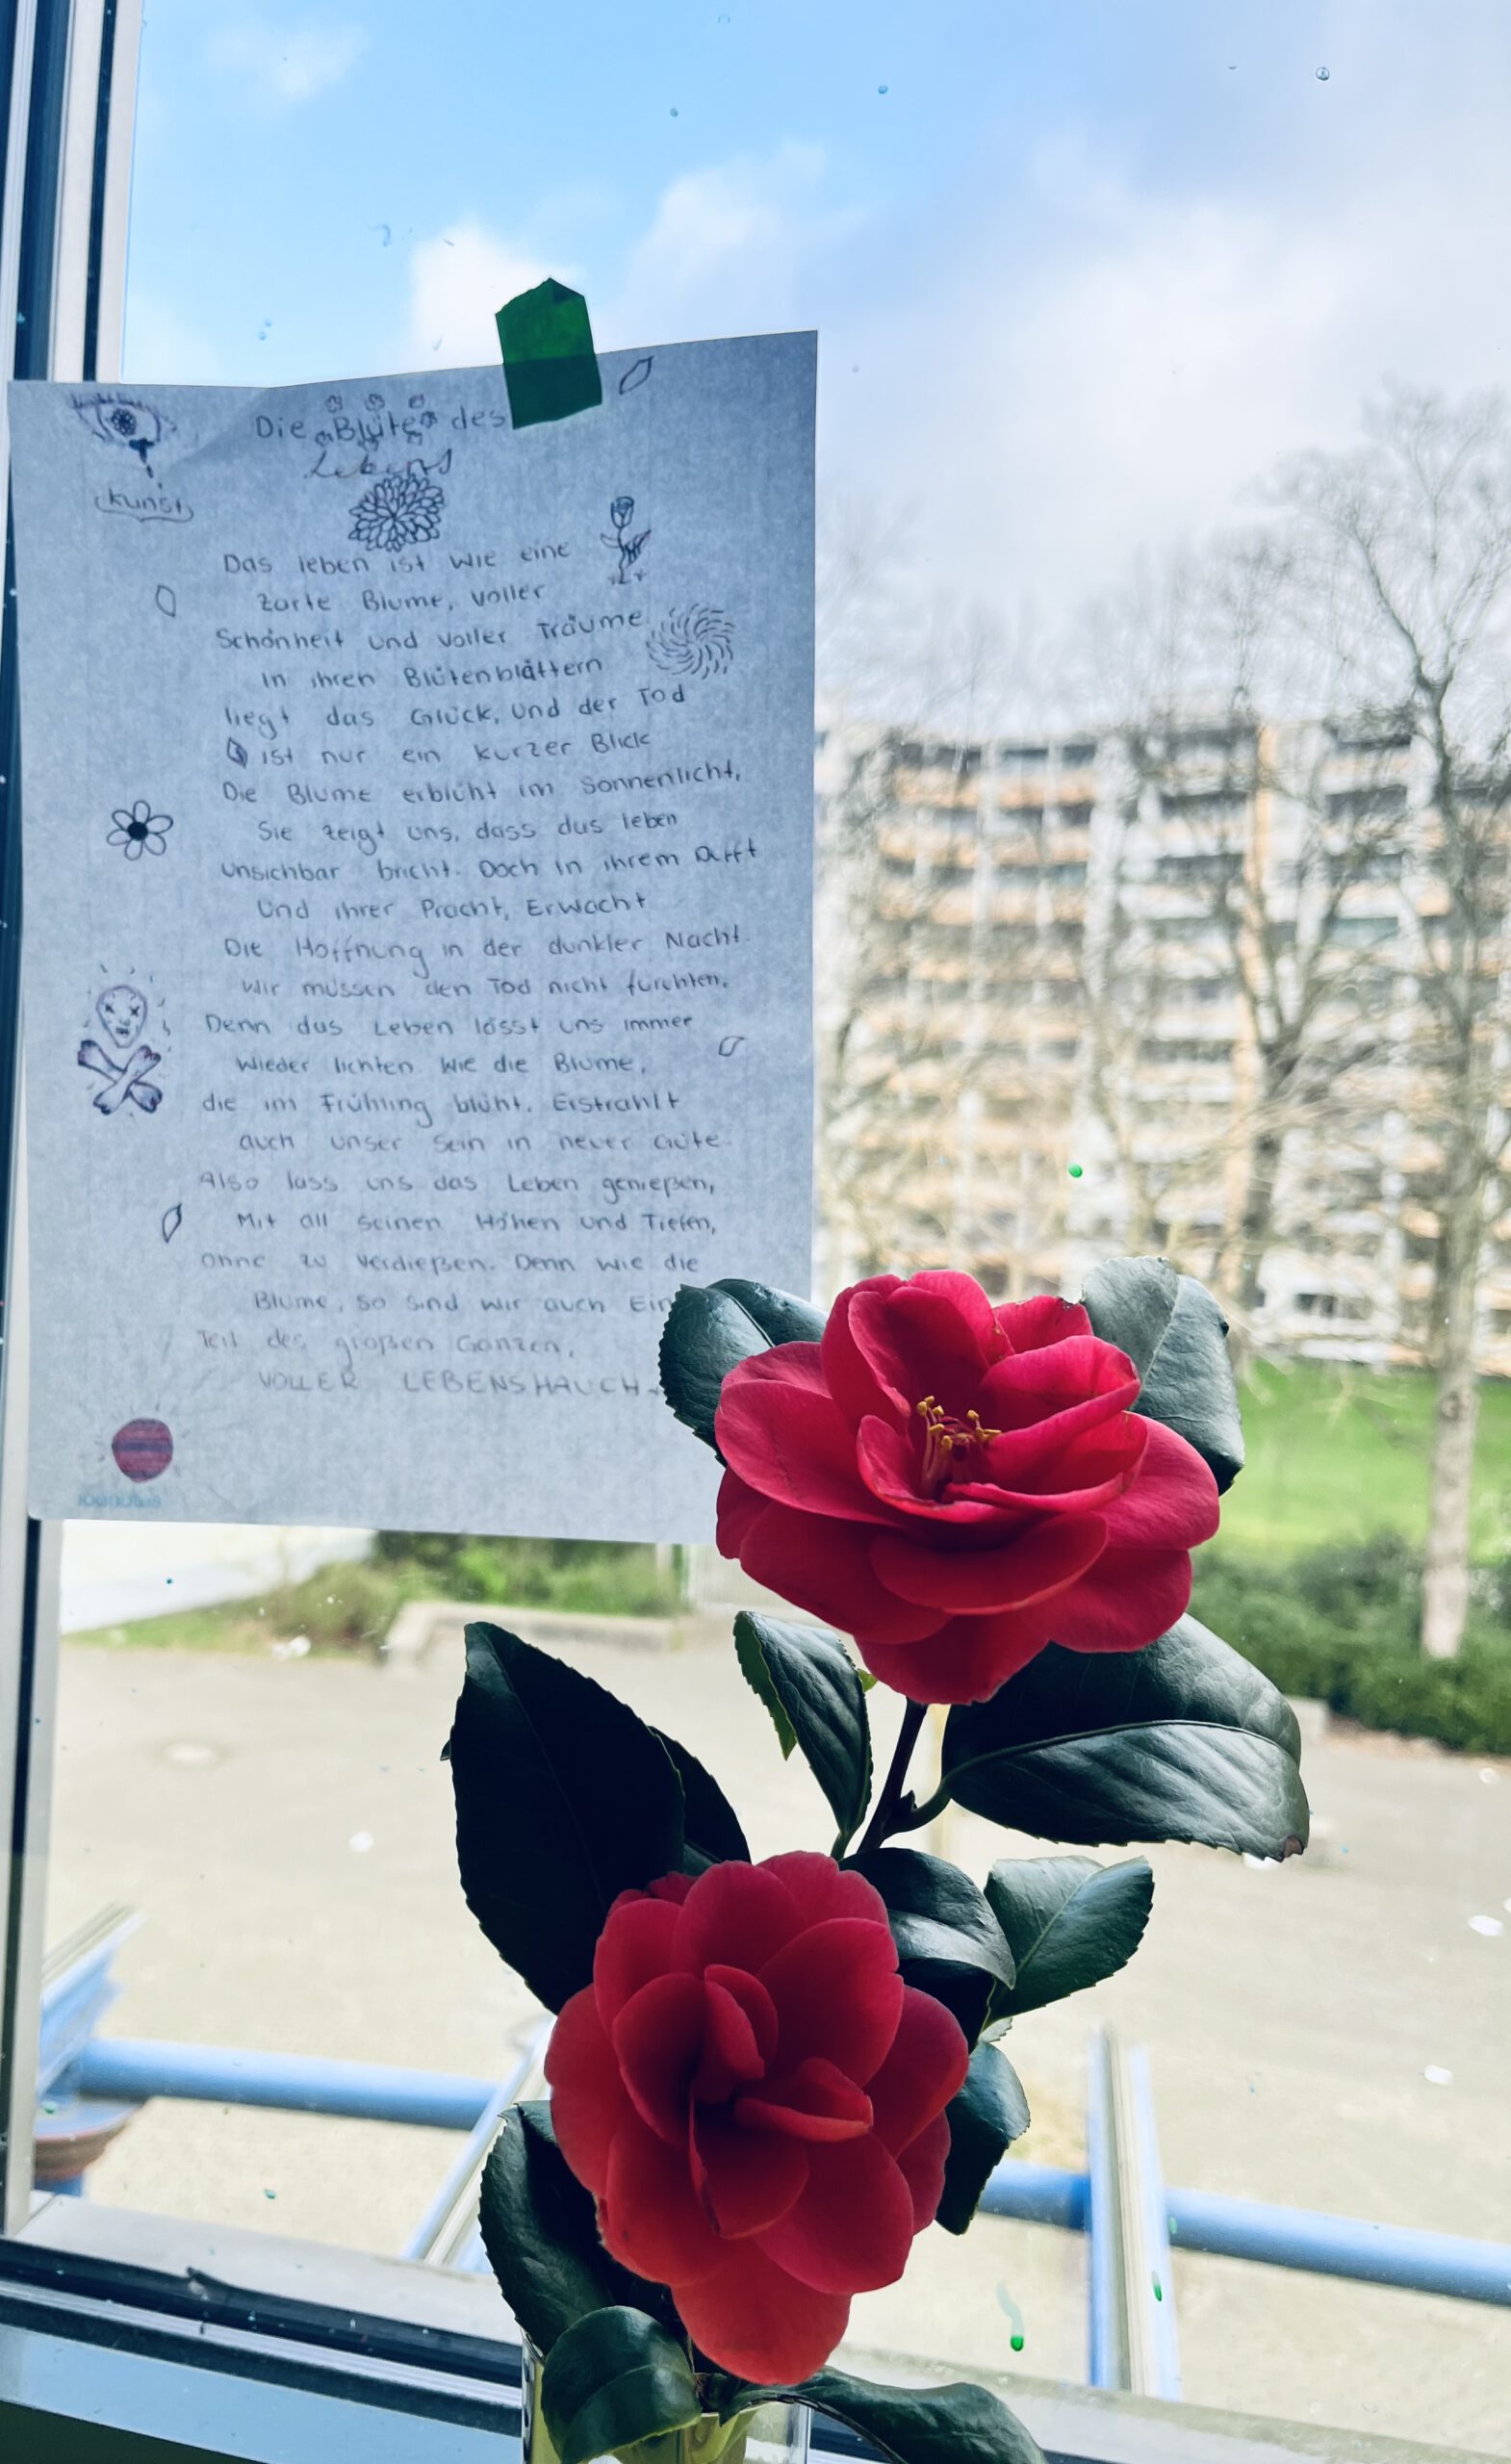 Die Blüte des
Lebens
kunst
Das leben ist wie eine
zarte Blume, voller
Schönheit und voller Träume
In ihren Blütenblättern
liegt das Glück, und der Tod
ist nur ein kurzer Blick
Die Blume erblüht im Sonnenlicht,
Sie zeigt uns, dass das leben
unsichbar bricht. Doch in ihrem Duft
Und ihrer Pracht, Erwacht
Die Hoffnung in der dunkler Nacht.
Wir müssen den Tod nicht fürchten,
Denn das Leben lässt uns immer
wieder lichten wie die Blume,
die im Frühling blüht. Erstrahlt
auch unser Sein in neuer Güte.
Also lass uns das Leben genießen,
Mit all seinen Höhen und Tiefen,
ohne zu verdießen. Denn wie die
Blume, so sind wir auch Ein
Teil des großen Ganzen,
VOLLER LEBENSHAUCH